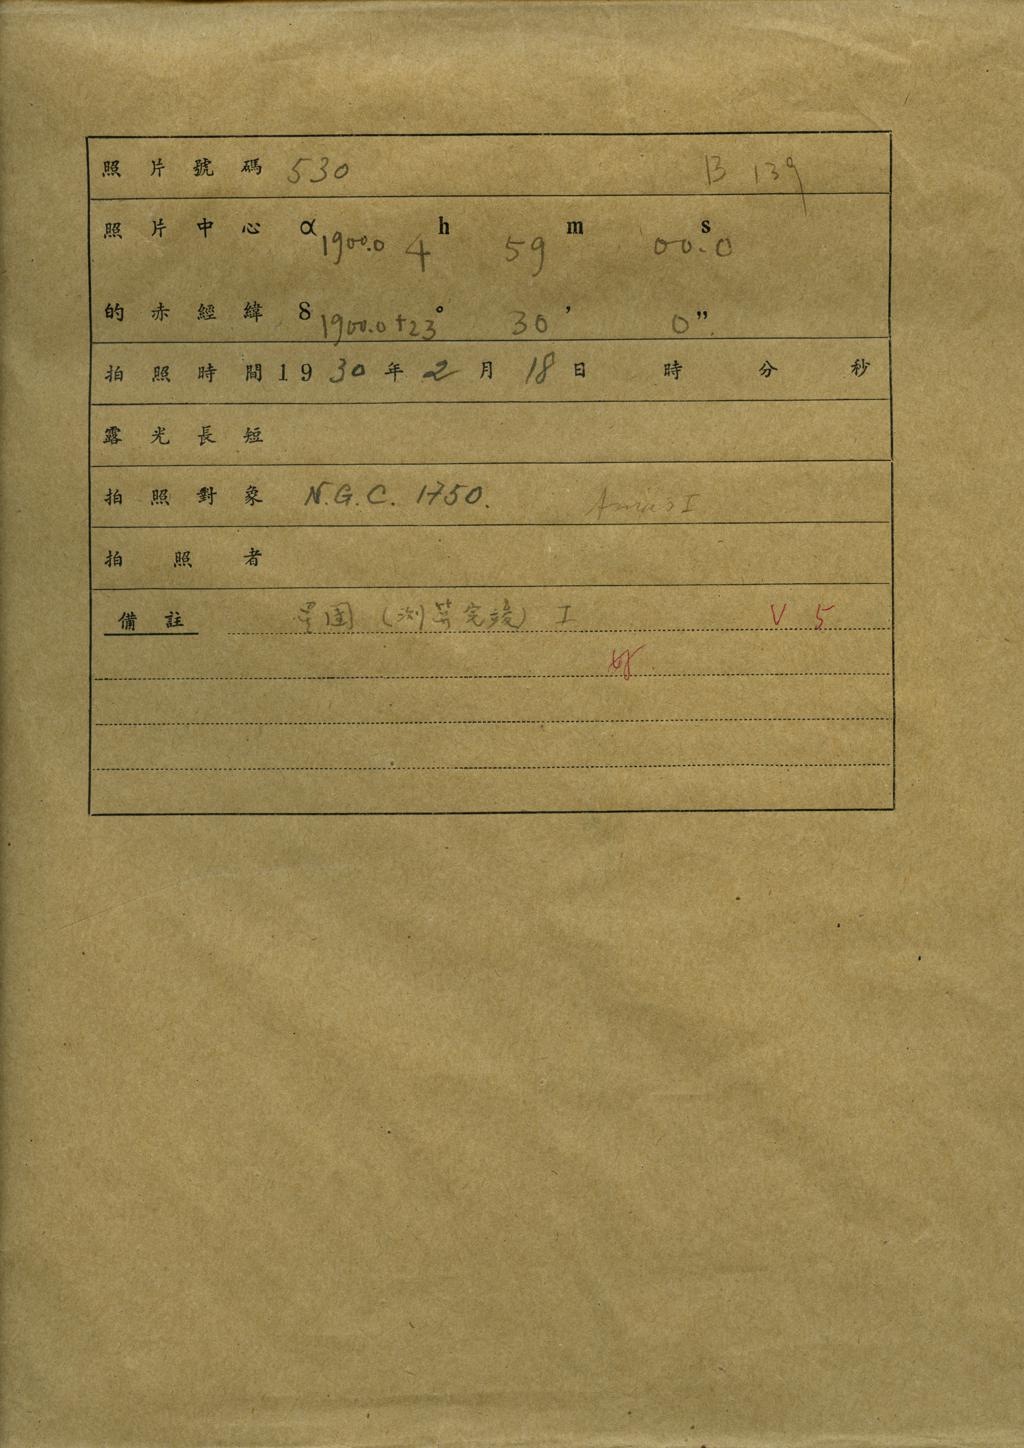 照片號碼 530 B 139
照片中心 α1900.0 4 h 59 m 00.0 s
的赤經緯 δ1900.0 +23° 30 ’ 0”
拍照時間 1930年2月18日 時 分 秒
露光長短
拍照對象 N.G.C. 1750.
拍照者
備註 星团 (測算完後) I V 5